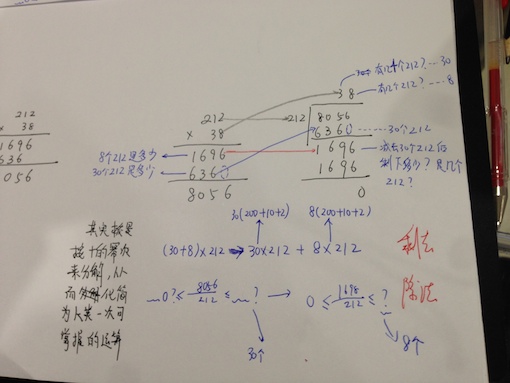 212
× 38
1696
636
8056
212
× 38
1696
6360
8056
8个212是多少
30个212是多少
38
212 8056
6360
1696
1696
0
有几个212? … 30
有几个212? … 8
30个212
减去30个212后
剩下多少? 是几个
212?
30(200+10+2) 8(200+10+2)
(30+8)×212 → 30×212 + 8×212
乘法
0? ≤ 8056/212 ≤ ? → 0 ≤ 1698/212 ≤ ?
除法
30个
8个
其实就是
按十的幂次
来分解,从
而 化简
为 一次可
掌握的运算